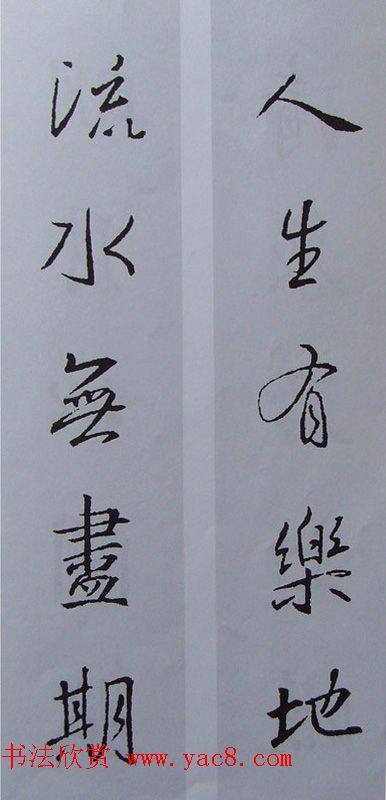 人生有樂地
流水無盡期
书法欣赏 www.yac8.com